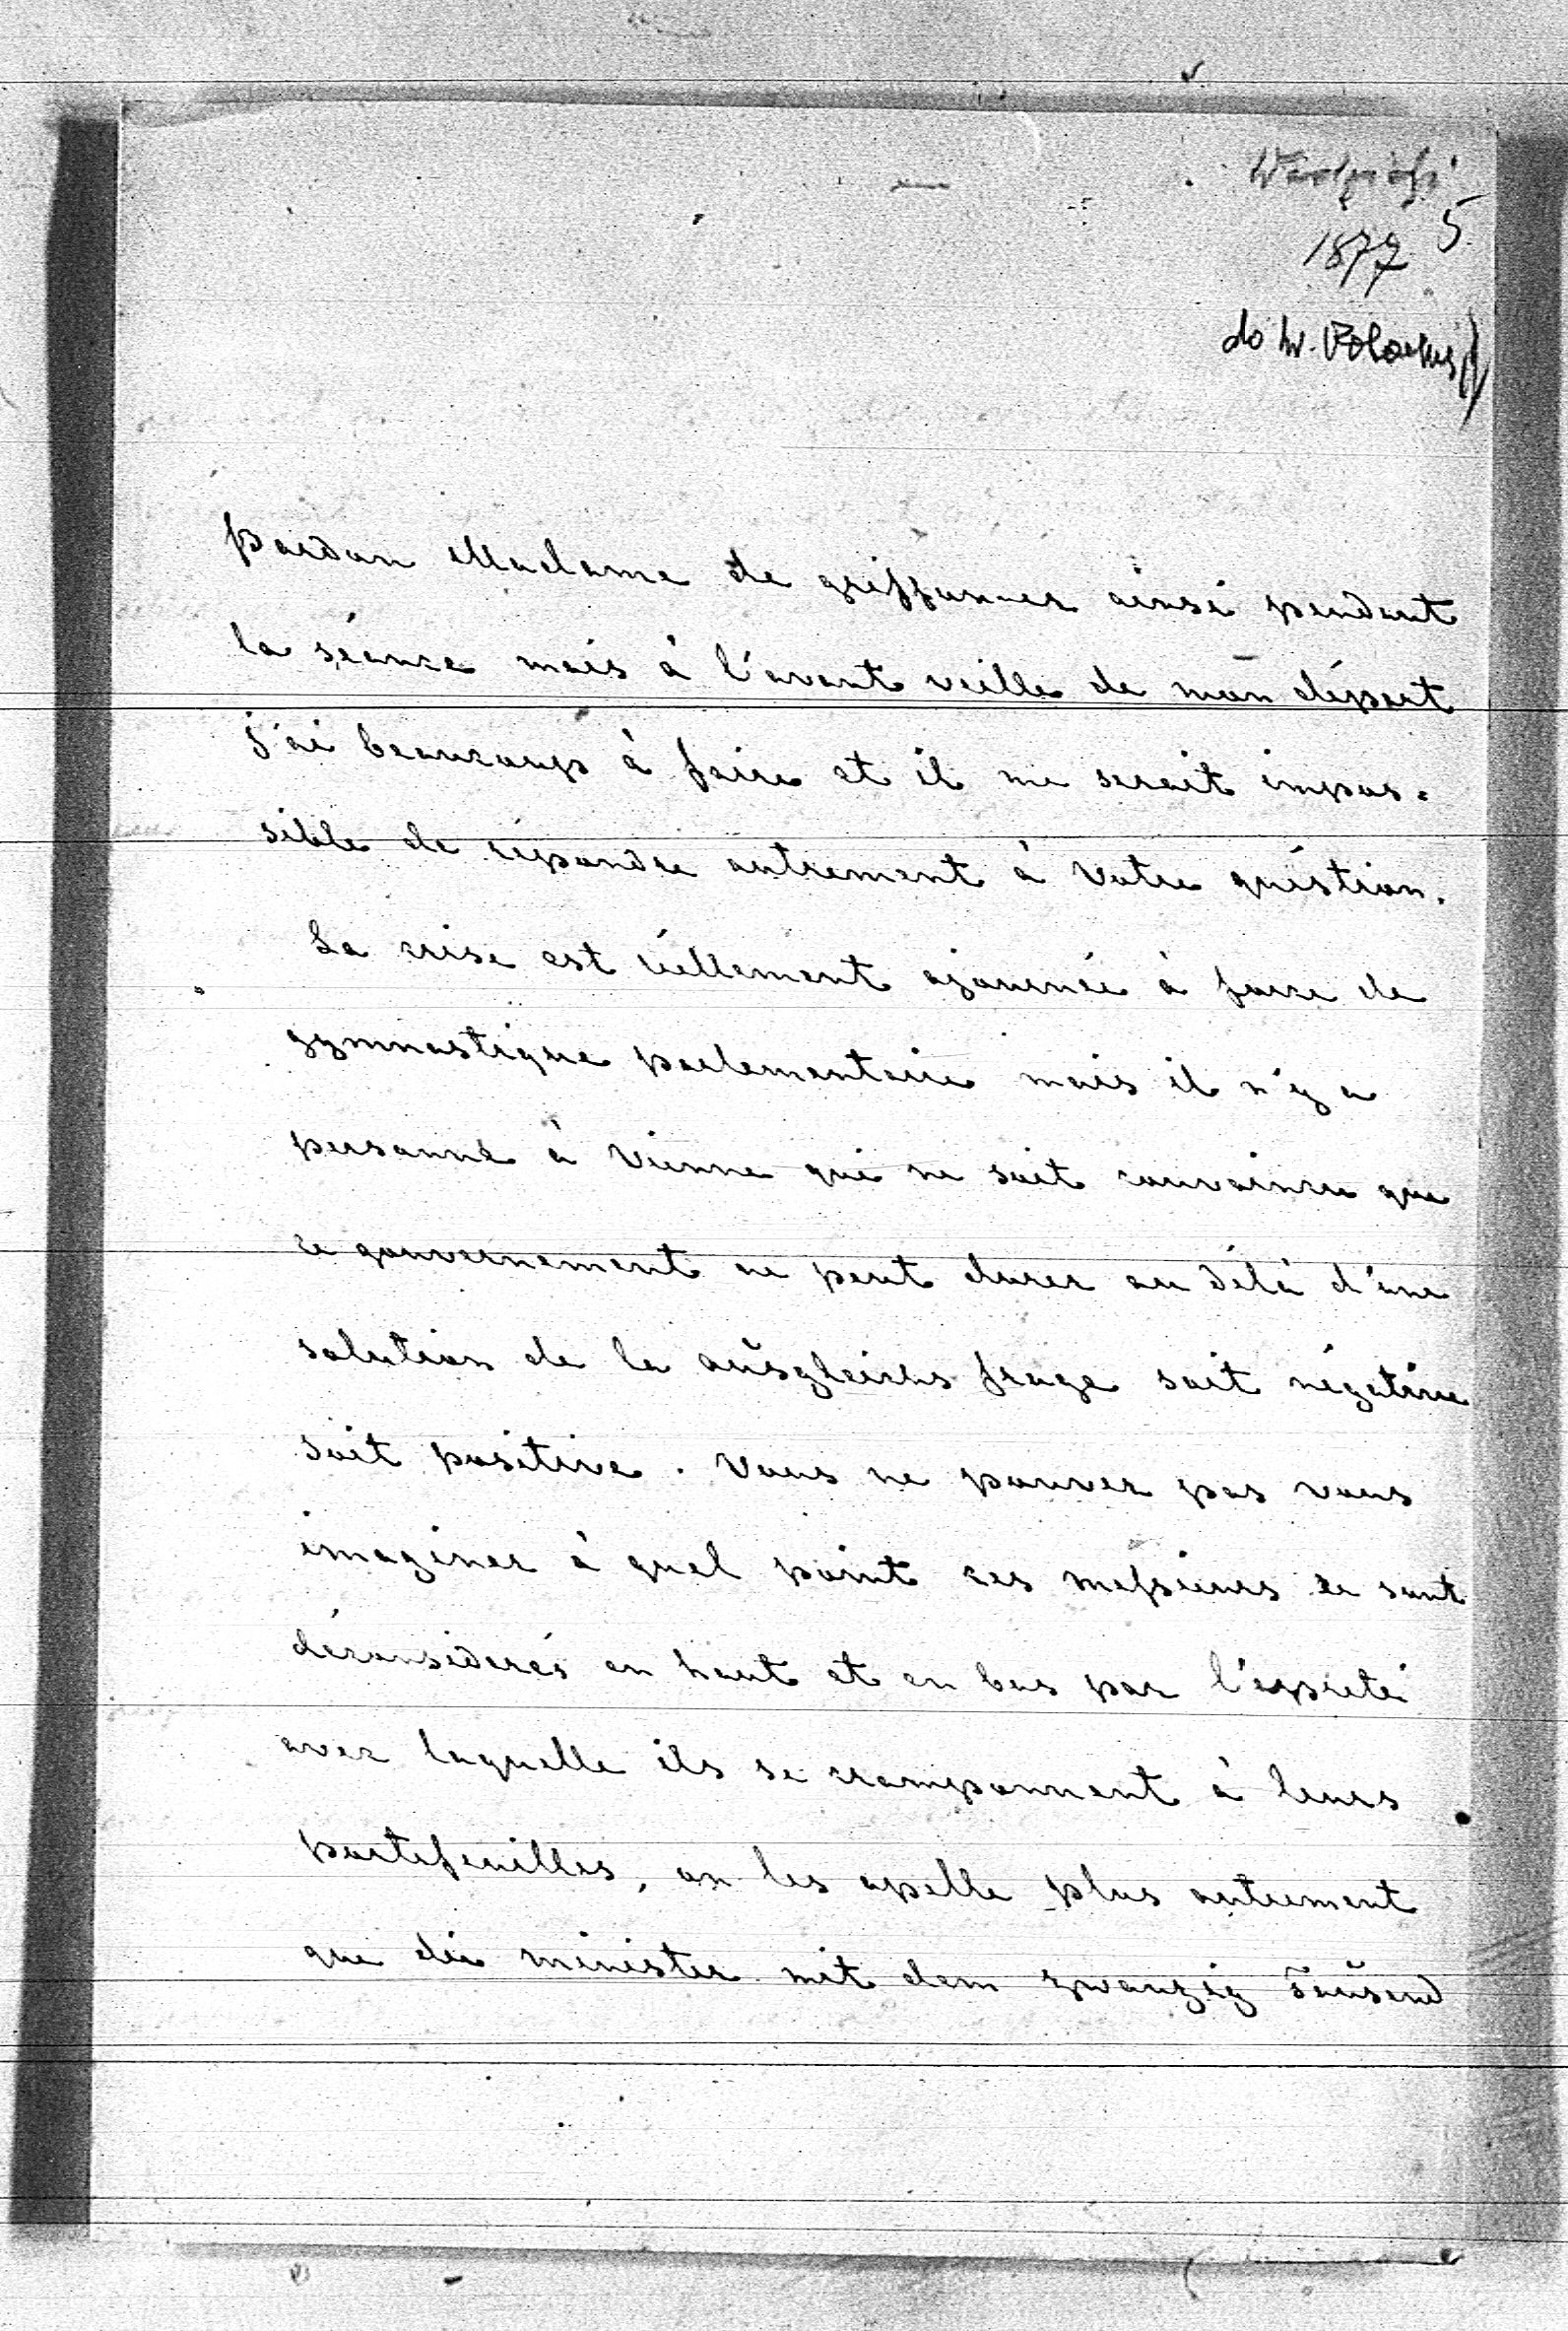 5
1877
do hr.
pardon Madame de griffonner ainsi pendant
la séance mais à l'avant veille de mon départ
j'ai beaucoup à faire et il me serait impos=
sible de répondre autrement à Votre quéstion.
La crise est réellement ajournée à force de
gymnastique parlementaire mais il n'y a
personne à Vienne qui ne soit convaincu que
ce gouvernement ne peut durer au délà d'une
solution de la ausgleichs frage soit négative
soit positive. Vous ne pouvez pas vous
imaginer à quel point ces messieurs se sont
déconsiderés en haut et en bas par l'apreté
avec laquelle ils se cramponnent à leurs
portefeuilles, on les apelle plus autrement
que die minister mit dem zwanzig tausend